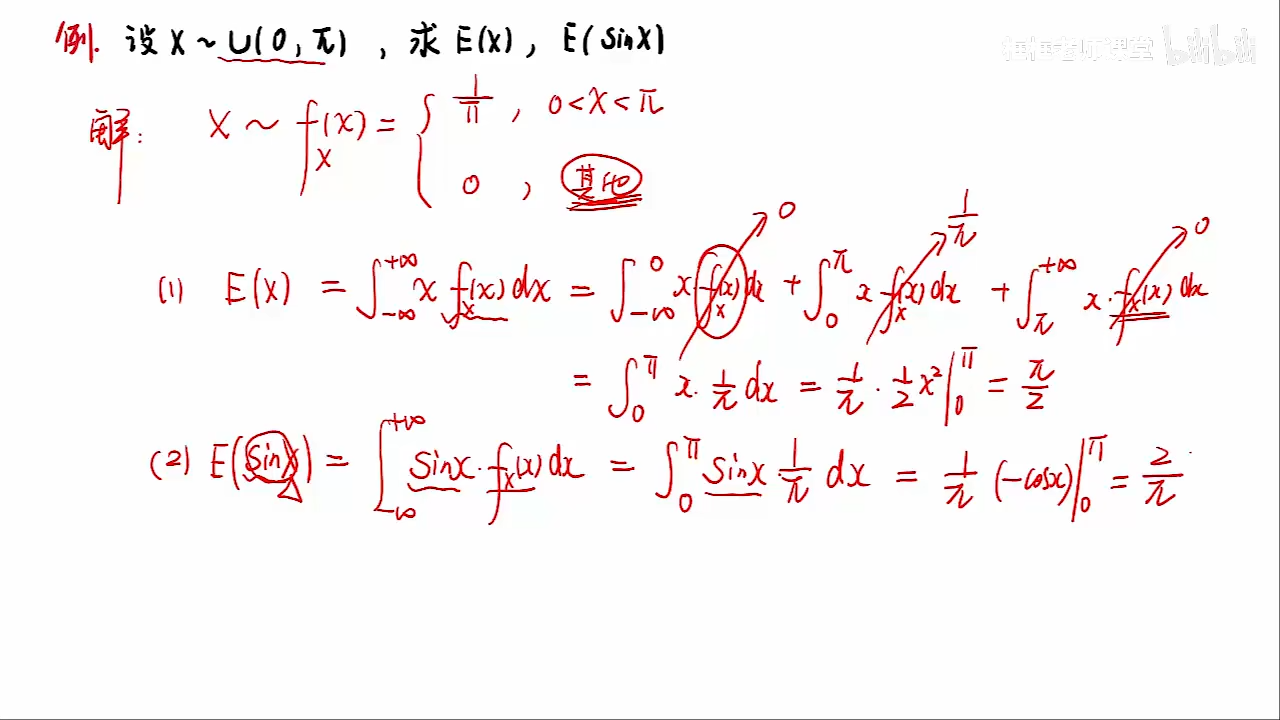 例. 设 X ~ U(0, π) , 求 E(X) , E(sinX)
框框老师课堂 bilibili
解: X ~ f_X(x) = { 1/π , 0<x<π
0 , 其他
(1) E(X) = ∫_{-∞}^{+∞} x f_X(x) dx = ∫_{-∞}^{0} x · f_X(x) dx + ∫_{0}^{π} x · f_X(x) dx + ∫_{π}^{+∞} x · f_X(x) dx
0 1/π 0
= ∫_{0}^{π} x · 1/π dx = 1/π · 1/2 x² |_{0}^{π} = π/2
(2) E(sinX) = ∫_{-∞}^{+∞} sinx · f_X(x) dx = ∫_{0}^{π} sinx · 1/π dx = 1/π (-cosx) |_{0}^{π} = 2/π